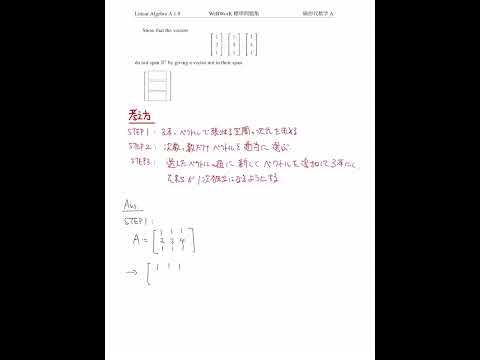 Linear Algebra A 1.9 WeBWorK 標準問題集 線形代数学 A
Show that the vectors
do not span R³ by giving a vector not in their span
考え方
STEP1: 3本のベクトルで張られる空間の次元を求める
STEP2: 次数の数だけベクトルを適当に選ぶ
STEP3: 選んだベクトルの組に新しくベクトルを追加して3本にし、
それらが1次独立になるようにする
Ans.
STEP1:
A = [ 1 1 1
2 3 4
1 1 1 ]
→ [ 1 1 1